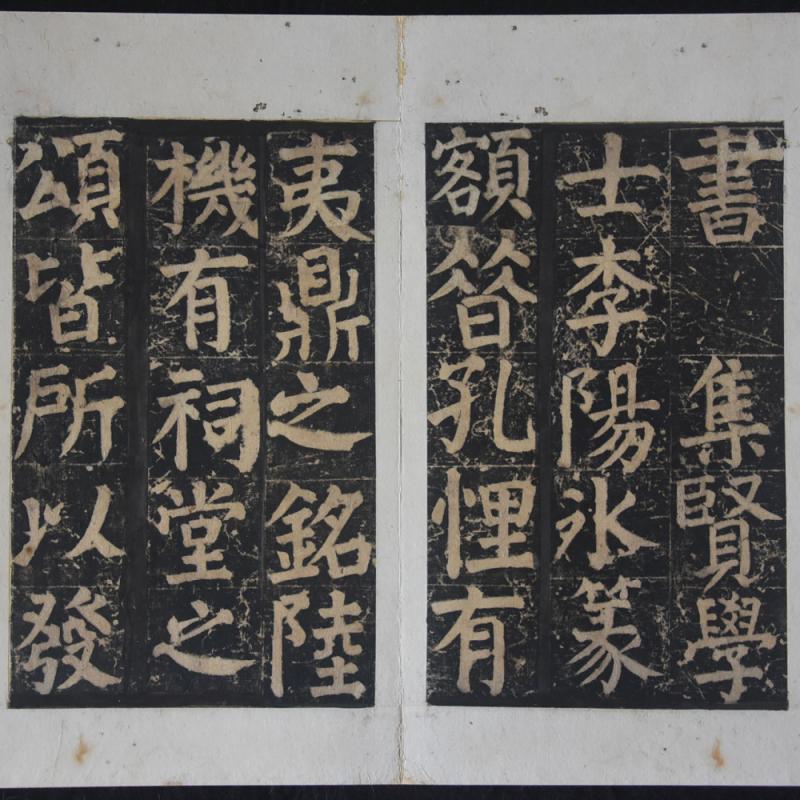 書 集賢學
士李陽冰篆
額昔孔悝有
夷鼎之銘陸
機有祠堂之
頌皆所以發